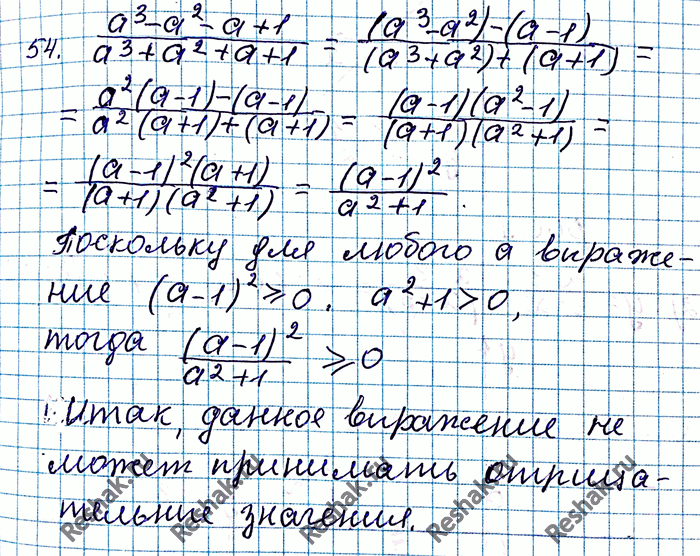 54. (a³-a²-a+1)/(a³+a²+a+1) = ((a³-a²)-(a-1))/((a³+a²)+(a+1)) =
= (a²(a-1)-(a-1))/(a²(a+1)+(a+1)) = ((a-1)(a²-1))/((a+1)(a²+1)) =
= ((a-1)²(a+1))/((a+1)(a²+1)) = (a-1)²/(a²+1).
Поскольку для любого а выраже-
ние (a-1)²≥0. a²+1>0,
тогда (a-1)²/(a²+1) ≥0
Итак, данное выражение не
может принимать отрица-
тельные значения.
Reshak.ru Reshak.ru Reshak.ru Reshak.ru Reshak.ru